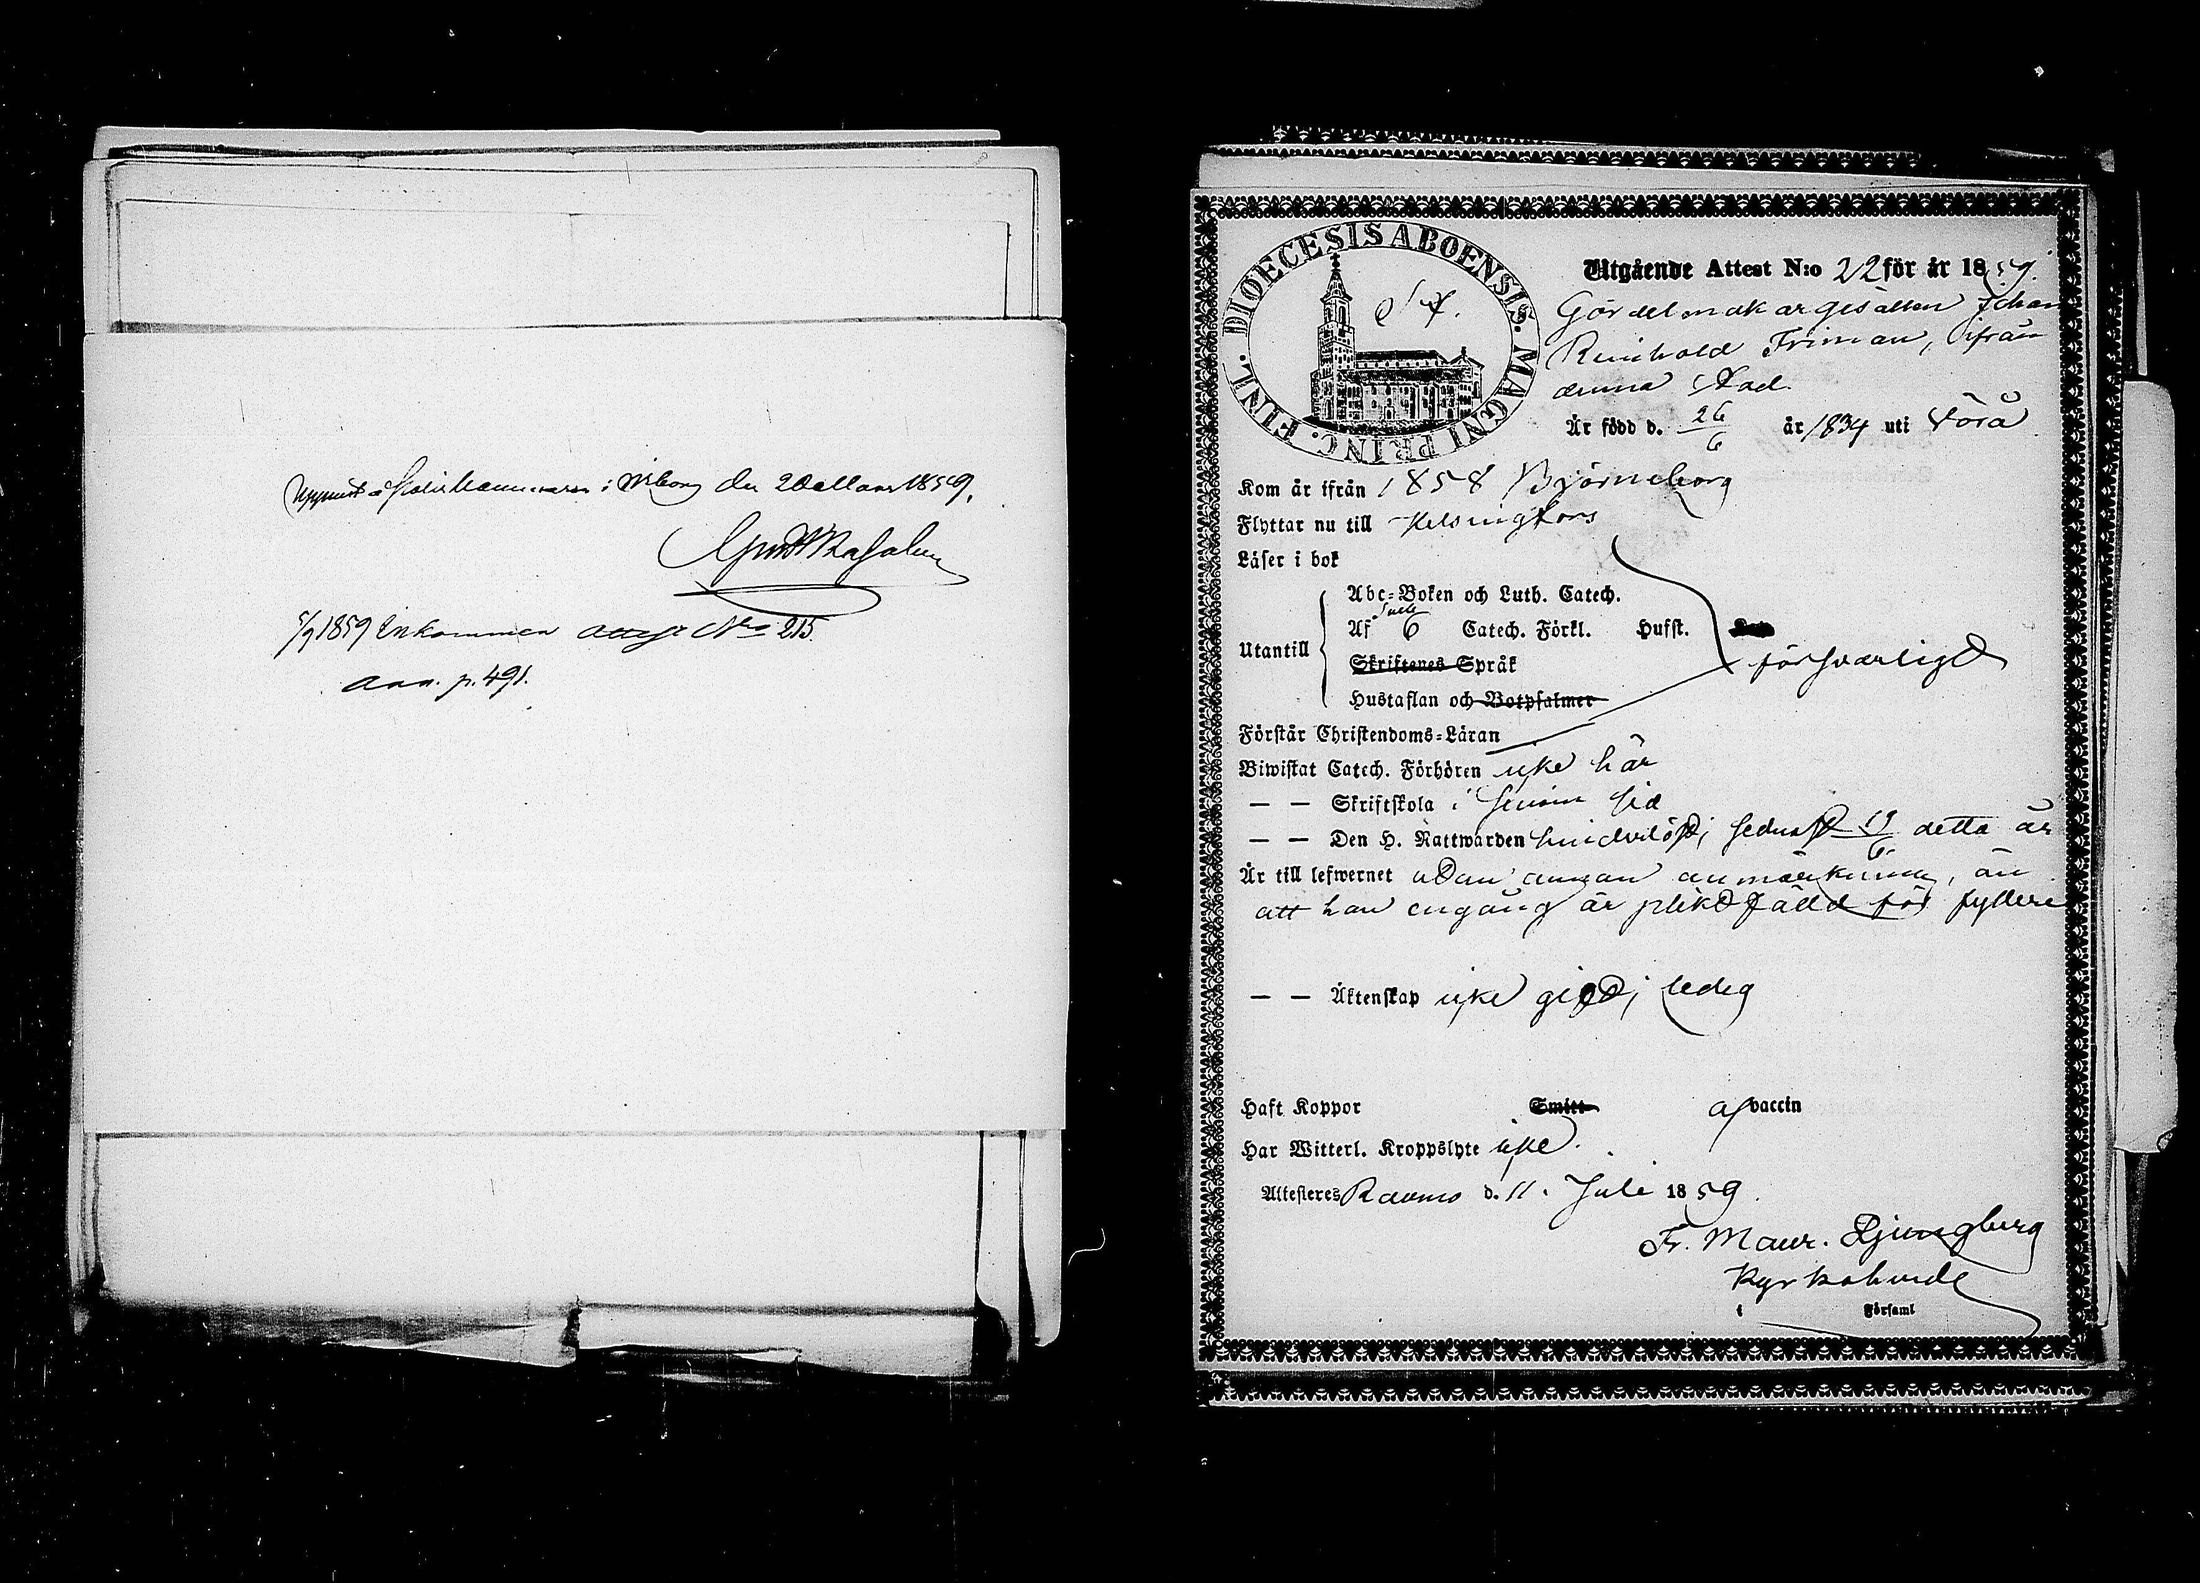 Uppvist å Poliskammaren i Wiborg den 20 1859.
5/9 1859 Inkommen attest No 215.
ann. p. 491.
FINL. DIOECESIS ABOENSIS. MAGNI PRINC.
Utgående Attest N:o 22 för år 1859.
Gördelmakaregesällen Johan
Reinhold Friman, ifrån
denna stad.
Är född d. 26/6 år 1834 uti Vörå
Kom år ifrån 1858 Björneborg
Flyttar nu till Helsingfors
Läser i bok
Abc-Boken och Luth. Catech.
Utantill Af 6 Catech. Förkl. Husst.
Skriftenes Språk försvarligt
Hustaflan och Botpsalmer
Förstår Christendoms-Läran
Biwistat Catech. Förhören icke här
— — Skriftskola i sinom tid
— — Den H. Nattwarden sednast 19/6 detta år
Är till lefwernet utan annan anmärkning, än
att han engång är pliktfälld för fylleri
— — Äktenskap icke gift; ledig
Haft Koppor Smitt af vaccin
Har Witterl. Kroppslyte icke.
Attesteres Raumo d. 11. Juli 1859.
Fr. Maur. Ljungberg
Kyrkoherde
i Församl